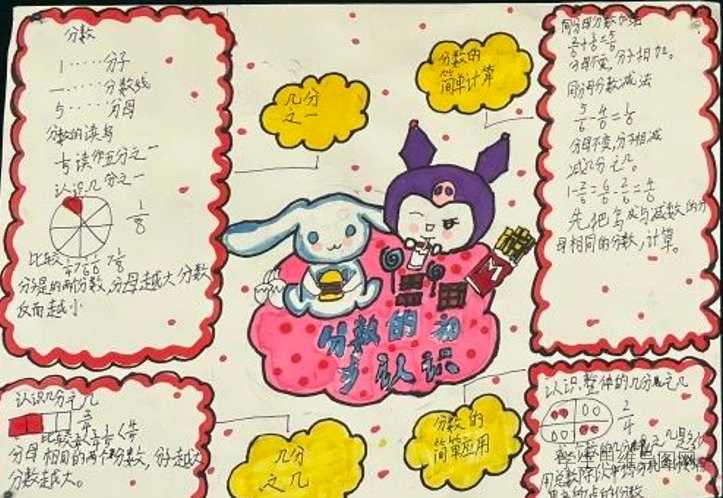 分数
1……分子
—……分数线
5……分母
分数的读写
1/5读作五分之一
认识几分之一
1/8
比较
分子是1的两个分数,分母越大分数
反而越小
几分
之一
分数的
简单计算
同分母分数加法
分母不变,分子相加。
同分母分数减法
5/6-4/6=1/6
分母不变,分子相减
1减几分之几。
1-2/6=6/6-2/6=4/6
先把1写成与减数的分
母相同的分数,计算。
M
分数的初
步认识
认识几分之几
2/4
比较
分母相同的两个分数,分子越大
分数越大。
几分
之几
分数的
简单应用
认识整体的几分之几
2/4
用总数除以